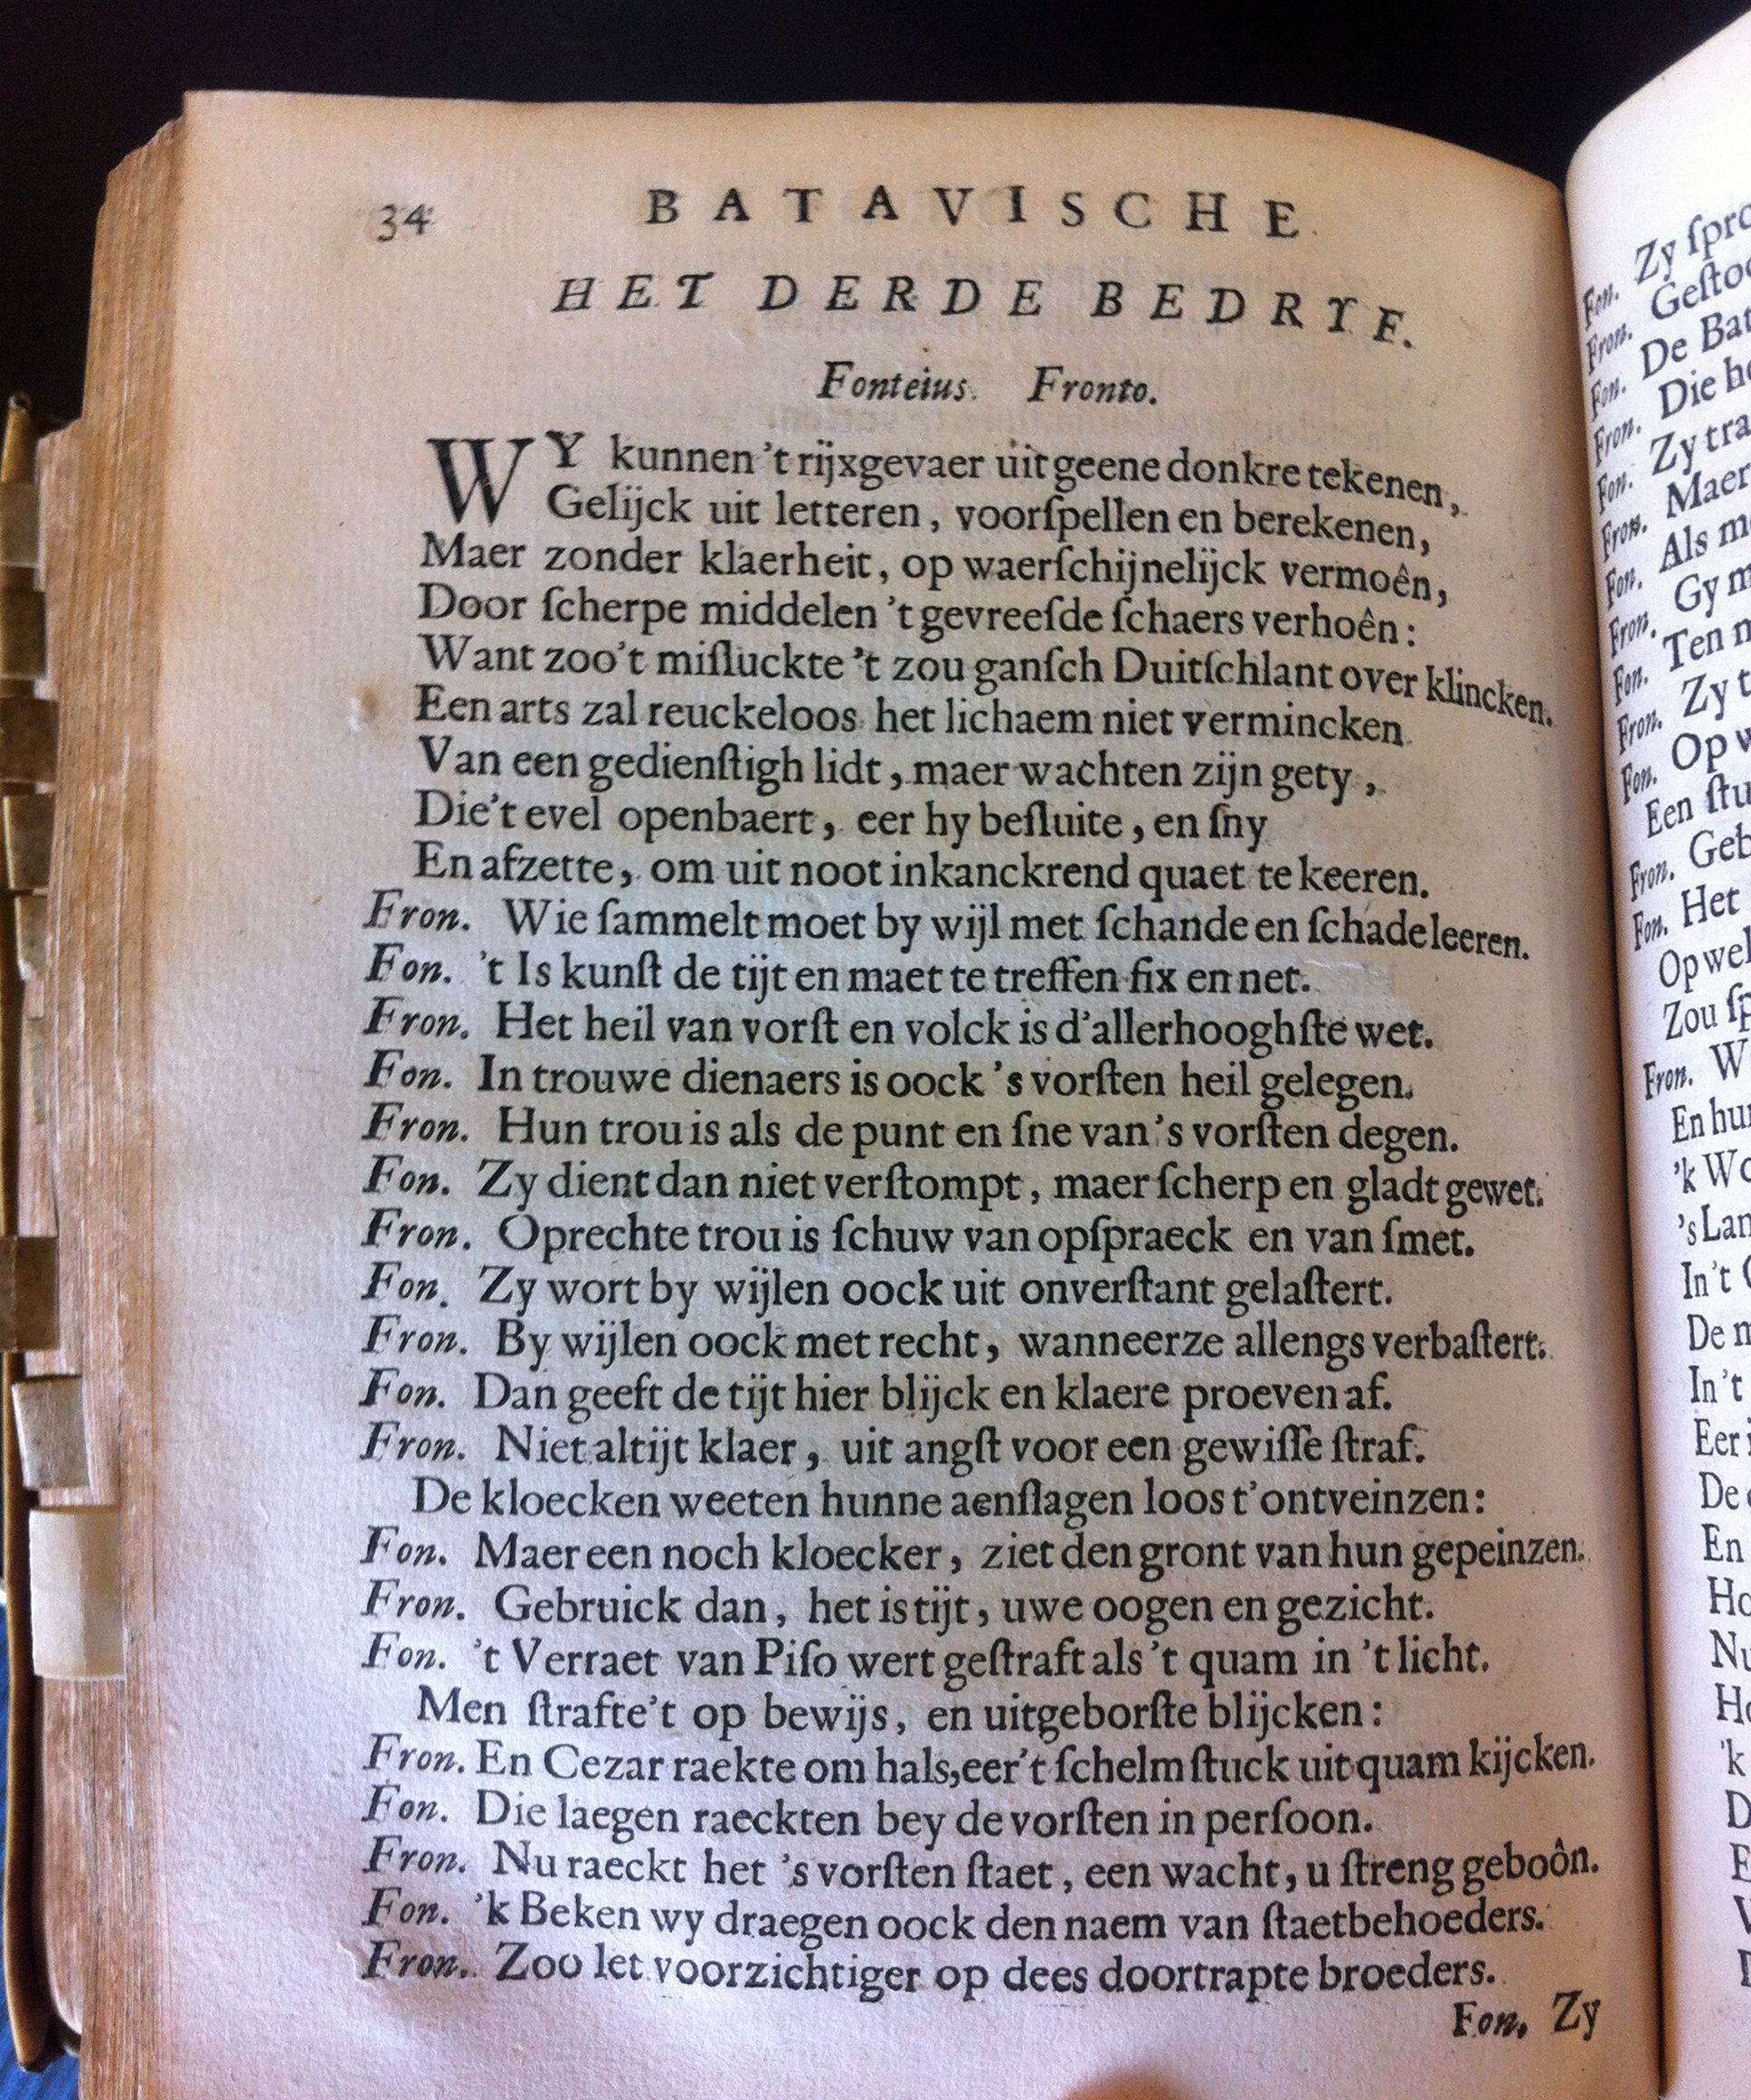 34 BATAVISCHE
HET DERDE BEDRYF.
Fonteius. Fronto.
WY kunnen 't rijxgevaer uit geene donkre tekenen,
Gelijck uit letteren, voorſpellen en berekenen,
Maer zonder klaerheit, op waerſchijnelijck vermoên,
Door ſcherpe middelen 't gevreeſde ſchaers verhoên:
Want zoo't miſluckte 't zou ganſch Duitſchlant over klincken.
Een arts zal reuckeloos het lichaem niet vermincken
Van een gedienſtigh lidt, maer wachten zijn gety,
Die't evel openbaert, eer hy beſluite, en ſny
En afzette, om uit noot inkanckrend quaet te keeren.
Fron. Wie ſammelt moet by wijl met ſchande en ſchade leeren.
Fon. 't Is kunſt de tijt en maet te treffen fix en net.
Fron. Het heil van vorſt en volck is d'allerhooghſte wet.
Fon. In trouwe dienaers is oock 's vorſten heil gelegen.
Fron. Hun trou is als de punt en ſne van 's vorſten degen.
Fon. Zy dient dan niet verſtompt, maer ſcherp en gladt gewet.
Fron. Oprechte trou is ſchuw van opſpraeck en van ſmet.
Fon. Zy wort by wijlen oock uit onverſtant gelaſtert.
Fron. By wijlen oock met recht, wanneerze allengs verbaſtert.
Fon. Dan geeft de tijt hier blijck en klaere proeven af.
Fron. Niet altijt klaer, uit angſt voor een gewiſſe ſtraf.
De kloecken weeten hunne aenſlagen loos t'ontveinzen:
Fon. Maer een noch kloecker, ziet den gront van hun gepeinzen.
Fron. Gebruick dan, het is tijt, uwe oogen en gezicht.
Fon. 't Verraet van Piſo wert geſtraft als 't quam in 't licht.
Men ſtrafte't op bewijs, en uitgeborſte blijcken:
Fron. En Cezar raekte om hals, eer't ſchelmſtuck uit quam kijcken.
Fon. Die laegen raeckten bey de vorſten in perſoon.
Fron. Nu raeckt het 's vorſten ſtaet, een wacht, u ſtreng geboôn.
Fon. 'k Beken wy draegen oock den naem van ſtaetbehoeders.
Fron. Zoo let voorzichtiger op dees doortrapte broeders.
Fon. Zy
Fon. Zy
Fron.
Fon. De
Fron. Die
Fon. Zy
Fron. Maer
Fon. Als
Fron. Gy
Fon. Ten
Fron. Zy
Fon. Op
Een
Fron.
Fon. Het
Op
Zou
Fron.
En
'k
's
In't
De
In't
Eer
De
En
'k